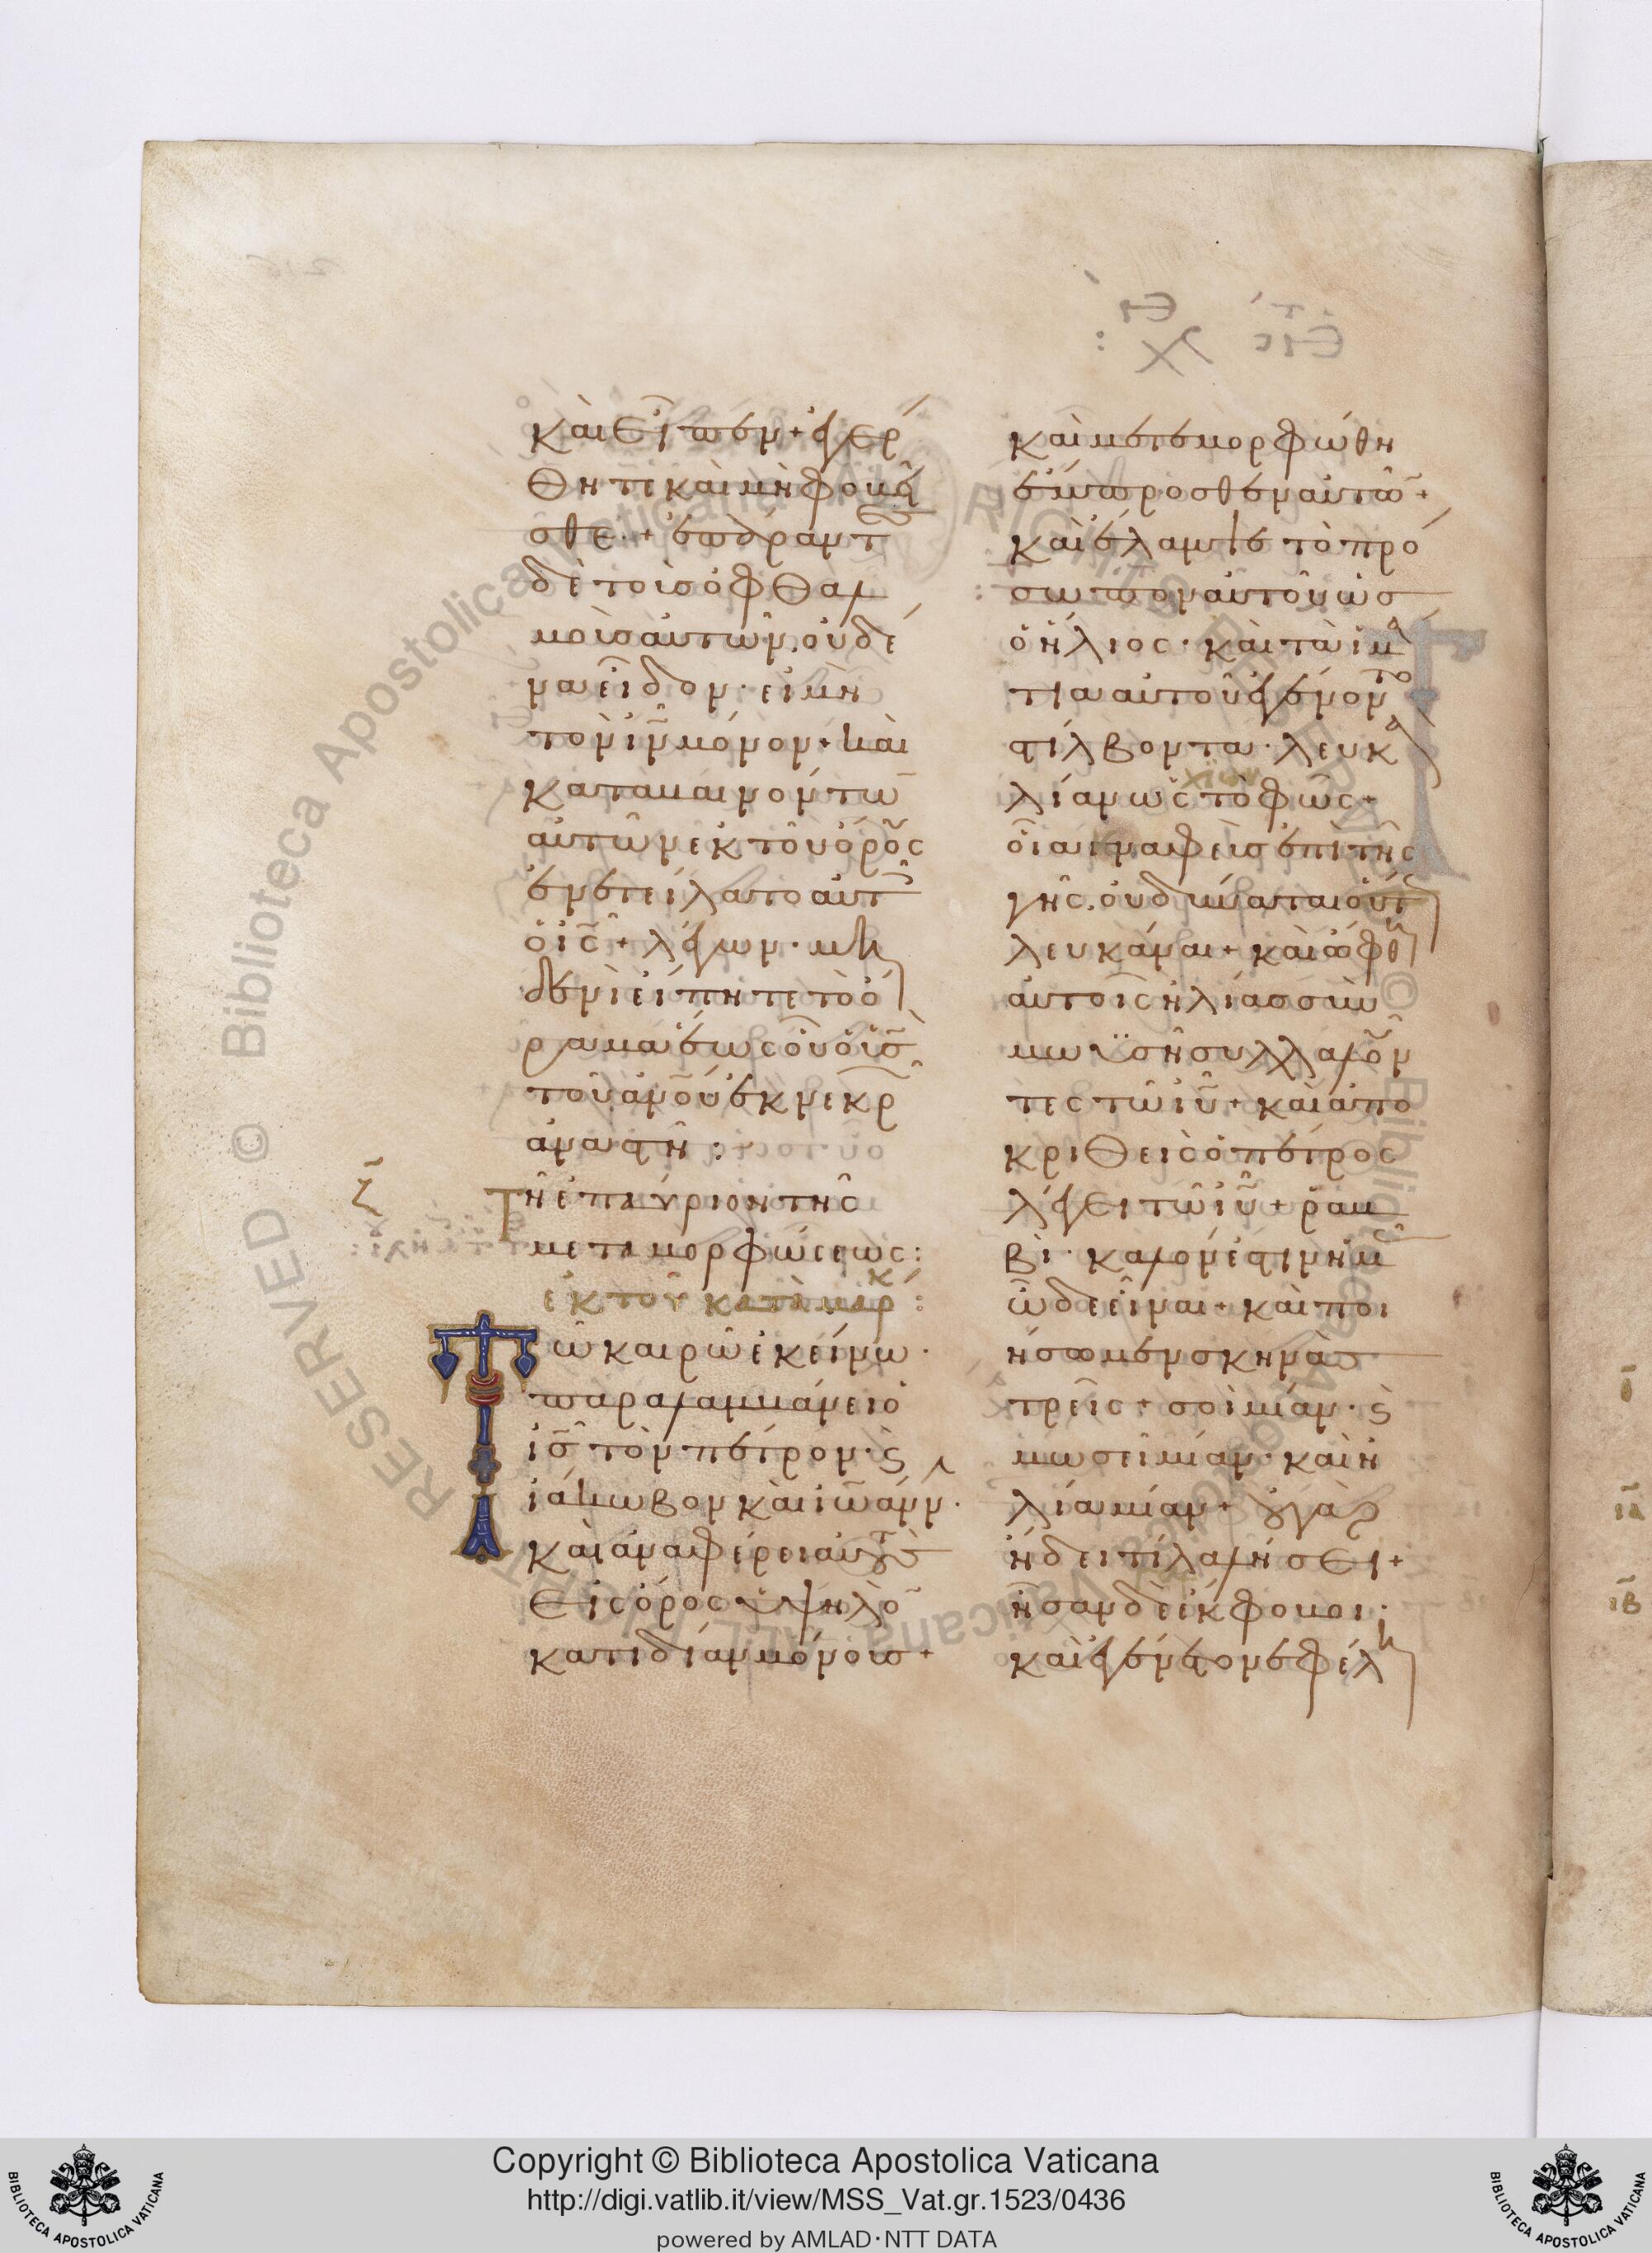 και εἶπεν + ἐγέρ
θητι και μὴ φοβεῖ
σθε + ἐπάραντες
δὲ τοὺσ ὀφθαλ
μοὺσ αὐτῶν, οὐδέ
να εἶδον · εἰ μὴ
τὸν ἰν μόνον + και
καταβαινόντων
αὐτῶν ἐκ τοῦ ὄρους
ἐνετείλατο αὐτοῖς
ὁ ις + λέγων · μη
δενὶ εἴπητε τὸ ὅ
ραμα ἕως οὗ ὁ υἱὸς
τοῦ ἀνου ἐκ νεκρῶν
ἀναστῆ :
ζ
Τῆ ἐπαύριον τῆς
μεταμορφώσεως :
ἐκ τοῦ κατὰ μάρκ :
Τῶ καιρῶ ἐκείνω ·
παραλαμβάνει ὁ
ις τὸν πέτρον · ϛ
ἰάκωβον καὶ ἰωάννην ·
καὶ ἀναφέρει αὐτοὺς
εἰς ὄρος ὑψηλὸ
κατιδίαν μόνουσ +
καὶ μετεμορφώθη
ἔμπροσθεν αὐτῶ +
καὶ ἔλαμψε τὸ πρό
σωπον αὐτοῦ ὡσ
ὁ ἥλιος · καὶ τὰ ἱμα
τια αὐτοῦ ἐγένοντο
στίλβοντα · λευκα
λίαν ὡς χιὼν τὸ φῶς +
οἷα κναφεὺσ ἐπὶ τῆς
γῆς · οὐ δύναται οὕτως
λευκάναι + καὶ ὤφθη
αὐτοῖς ἡλίασ σὺν
μωϋσῆ συλλαλοῦν
τες τῶ ιυ + καὶ ἀπο
κριθεὶς ὁ πέτρος
λέγει τῶ ιυ + ραβ
βὶ · καλόν ἐστιν ἡμᾶς
ὧδε εἶναι + καὶ ποι
ήσωμεν σκηνὰς
τρεῖς + σοὶ μίαν · ϛ
μωσεῖ μίαν · καὶ ἡ
λία μίαν + οὐ γὰρ
ἤδει τί λαλήσει +
ἦσαν δὲ ἔκφοβοι ·
καὶ ἐγένετο νεφέλη
RESERVED © Biblioteca Apostolica Vaticana
Copyright © Biblioteca Apostolica Vaticana
http://digi.vatlib.it/view/MSS_Vat.gr.1523/0436
powered by AMLAD·NTT DATA
BIBLIOTECA APOSTOLICA VATICANA
BIBLIOTECA APOSTOLICA VATICANA